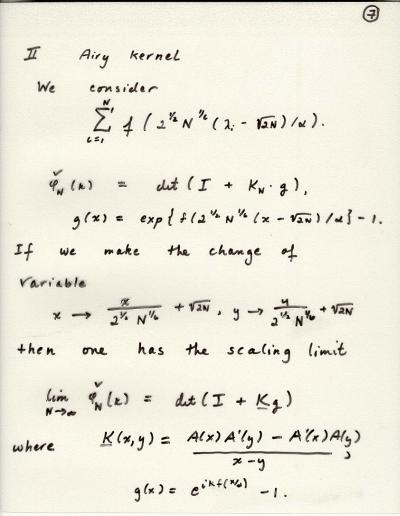 ⑦
II Airy kernel
We consider
N
∑ f ( 2^{1/2} N^{1/6} ( λ_i - √2N ) / α ).
i=1
φ̌_N (k) = det ( I + K_N · g ),
g(x) = exp{ f ( 2^{1/2} N^{1/6} (x - √2N ) / α } - 1.
If we make the change of
variable
x → x / 2^{1/2} N^{1/6} + √2N , y → y / 2^{1/2} N^{1/6} + √2N
then one has the scaling limit
lim_{N→∞} φ̌_N (k) = det ( I + K g )
where K (x, y) = A(x) A'(y) - A'(x) A(y) / x - y ,
g(x) = e^{ikf(x/α)} - 1.